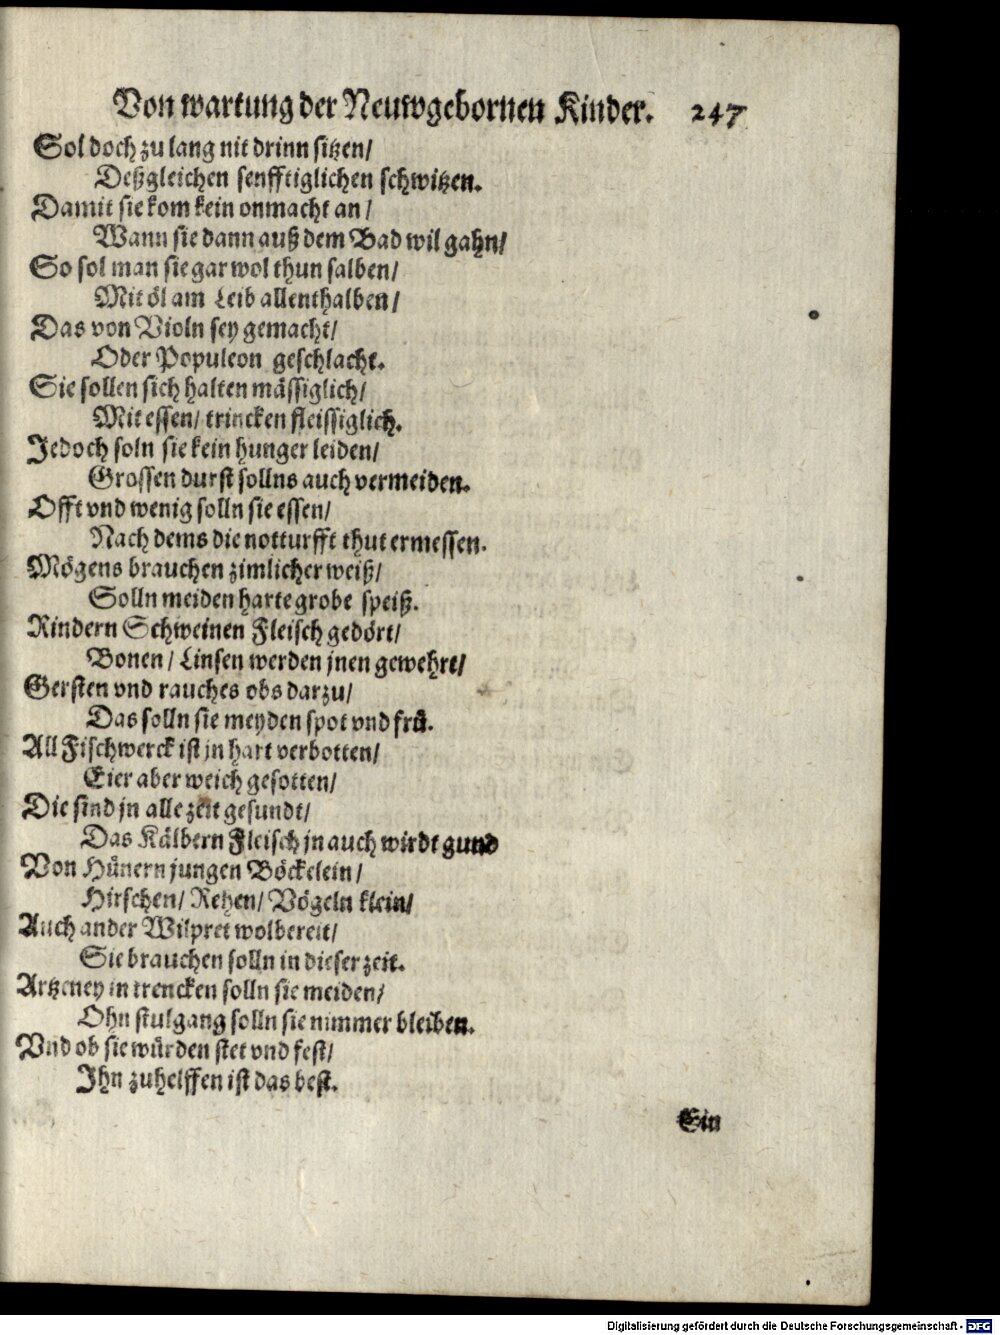 Von wartung der Neuwgebornen Kinder. 247
Sol doch zu lang nit drinn sitzen/
Deßgleichen senfftiglichen schwitzen.
Damit sie kom kein onmacht an/
Wann sie dann auß dem Bad wil gahn/
So sol man sie gar wol thun salben/
Mit öl am Leib allenthalben/
Das von Violn sey gemacht/
Oder Populeon geschlacht.
Sie sollen sich halten mässiglich/
Mit essen/ trincken fleissiglich.
Jedoch soln sie kein hunger leiden/
Grossen durst sollns auch vermeiden.
Offt vnd wenig solln sie essen/
Nach dems die notturfft thut ermessen.
Mögens brauchen zimlicher weiß/
Solln meiden harte grobe speiß.
Rindern Schweinen Fleisch gedört/
Bonen/ Linsen werden jnen gewehrt/
Gersten vnd rauches obs darzu/
Das solln sie meyden spot vnd frů.
All Fischwerck ist jn hart verbotten/
Eier aber weich gesotten/
Die sind jn alle zeit gesundt/
Das Kälbern Fleisch jn auch wirdt gund
Von Hünern jungen Böckelein/
Hirschen/ Rehen/ Vögeln klein/
Auch ander Wilpret wolbereit/
Sie brauchen solln in dieser zeit.
Artzeney in trencken solln sie meiden/
Ohn stulgang solln sie nimmer bleiben.
Vnd ob sie würden stet vnd fest/
Jhn zuhelffen ist das best.
Ein
Digitalisierung gefördert durch die Deutsche Forschungsgemeinschaft - DFG